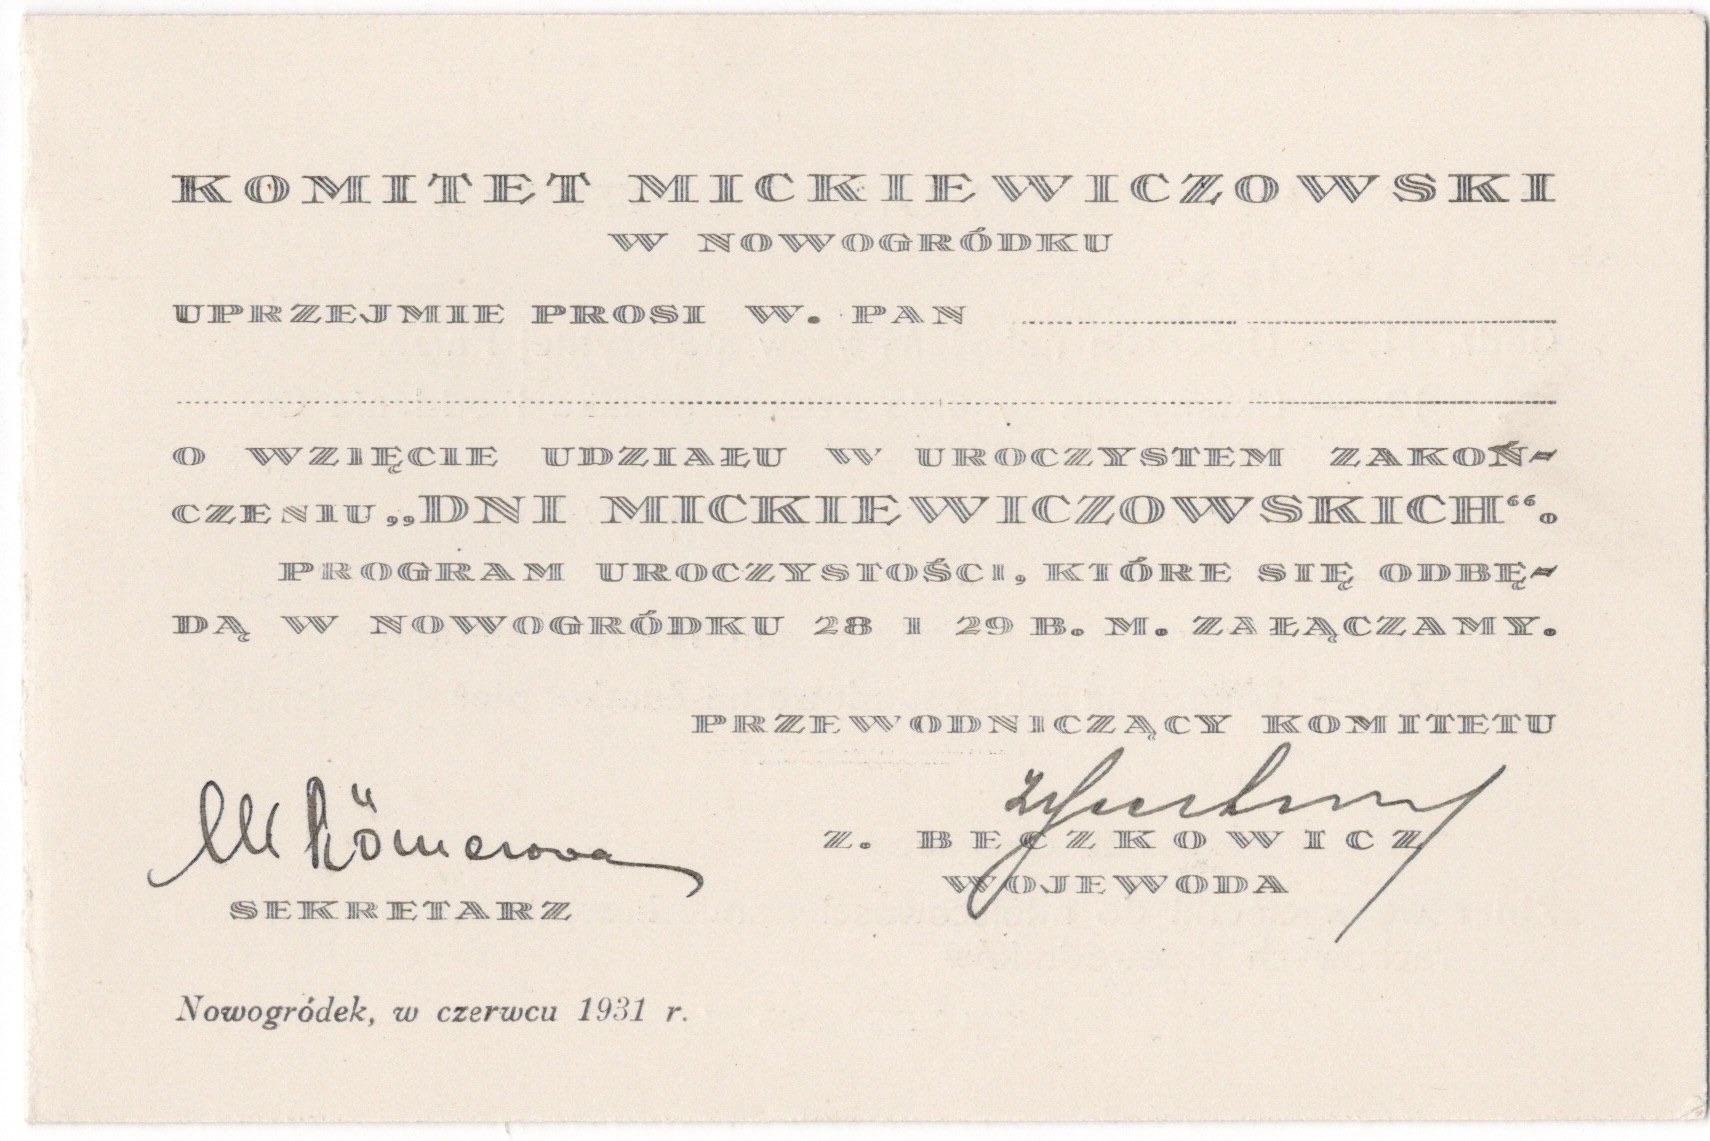 KOMITET MICKIEWICZOWSKI
W NOWOGRÓDKU
UPRZEJMIE PROSI W. PAN
O WZIĘCIE UDZIAŁU W UROCZYSTEM ZAKOŃ-
CZENIU „DNI MICKIEWICZOWSKICH“.
PROGRAM UROCZYSTOŚCI, KTÓRE SIĘ ODBĘ-
DĄ W NOWOGRÓDKU 28 I 29 B. M. ZAŁĄCZAMY.
PRZEWODNICZĄCY KOMITETU
M Römerowa
Z. BECZKOWICZ
WOJEWODA
SEKRETARZ
Nowogródek, w czerwcu 1931 r.